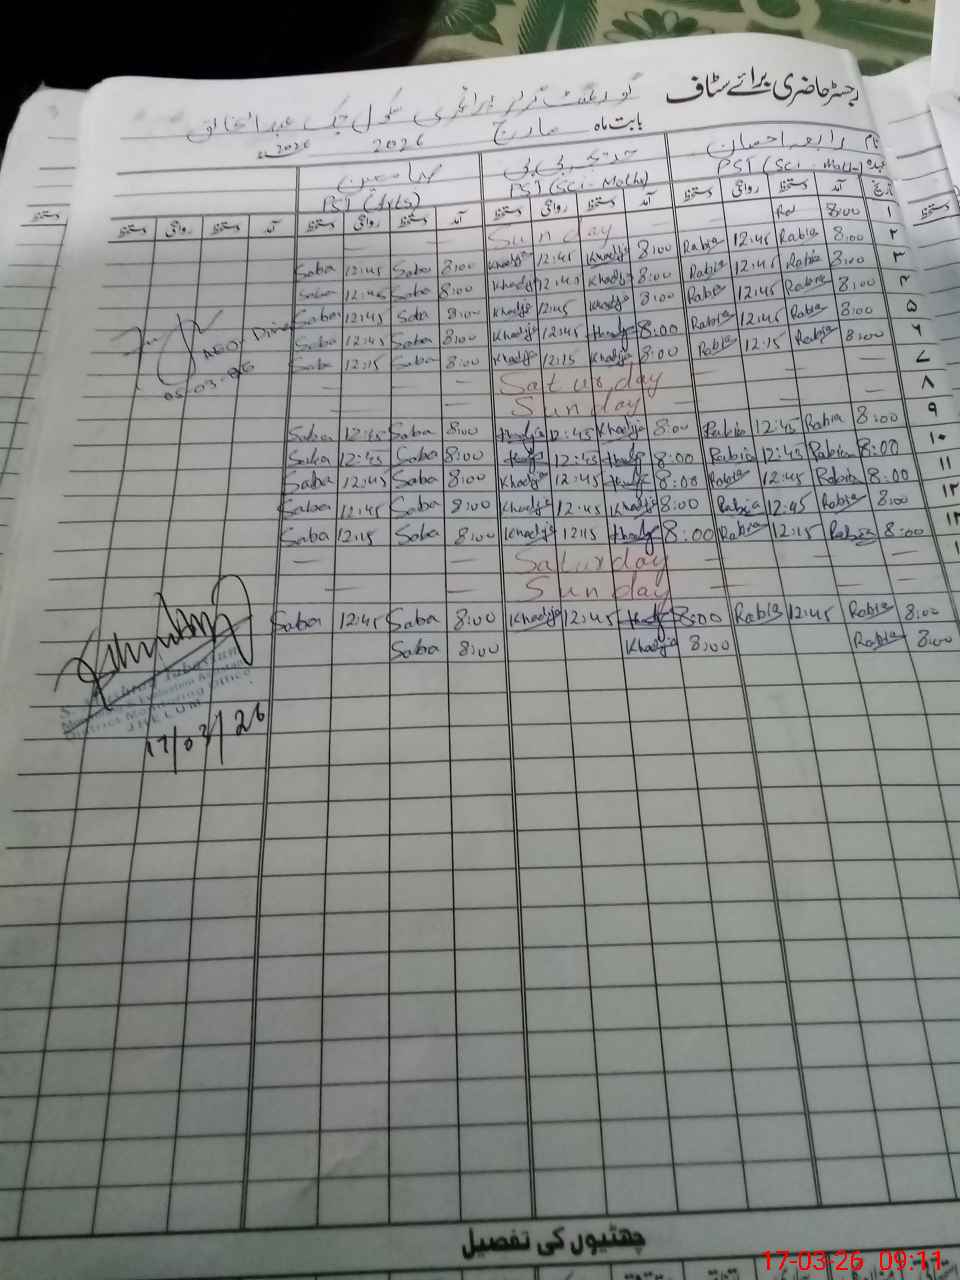 رجسٹر حاضری برائے سٹاف
گورنمنٹ گرلز پرائمری سکول چک عبدالخالق
بابت ماہ مارچ 2026 2026ء
نام رابعہ احسان خدیجہ بی بی صبا
عہدہ PST (Sci - Math) PST (Sci - Maths) PST (Arts)
تاریخ آمد دستخط روانگی دستخط آمد دستخط روانگی دستخط آمد دستخط روانگی دستخط آمد دستخط روانگی دستخط
۱ 8:00 Ra — Sunday — —
۲ 8:00 Rabia 12:45 Rabia 8:00 Khadija 12:45 Khadija 8:00 Saba 12:45 Saba
۳ 8:00 Rabia 12:45 Rabia 8:00 Khadija 12:45 Khadija 8:00 Saba 12:45 Saba
۴ 8:00 Rabia 12:45 Rabia 8:00 Khadija 12:45 Khadija 8:00 Saba 12:45 Saba
۵ 8:00 Rabia 12:45 Rabia 8:00 Khadija 12:45 Khadija 8:00 Saba 12:45 Saba
۶ 8:00 Rabia 12:15 Rabia 8:00 Khadija 12:15 Khadija 8:00 Saba 12:15 Saba
۷ — — — Saturday — —
۸ — — — Sunday — —
۹ 8:00 Rabia 12:45 Rabia 8:00 Khadija 12:45 Khadija 8:00 Saba 12:45 Saba
۱۰ 8:00 Rabia 12:45 Rabia 8:00 Khadija 12:45 Khadija 8:00 Saba 12:45 Saba
۱۱ 8:00 Rabia 12:45 Rabia 8:00 Khadija 12:45 Khadija 8:00 Saba 12:45 Saba
۱۲ 8:00 Rabia 12:45 Rabia 8:00 Khadija 12:45 Khadija 8:00 Saba 12:45 Saba
۱۳ 8:00 Rabia 12:15 Rabia 8:00 Khadija 12:15 Khadija 8:00 Saba 12:15 Saba
— — — Saturday — —
— — — Sunday — —
8:00 Rabia 12:45 Rabia 8:00 Khadija 12:45 Khadija 8:00 Saba 12:45 Saba
8:00 Rabia 8:00 Khadija 8:00 Saba
AEO Dina
05-03-26
Monitoring & Evaluation
District Monitoring Office
JHELUM
17/03/26
چھٹیوں کی تفصیل
17-03-26 09:11